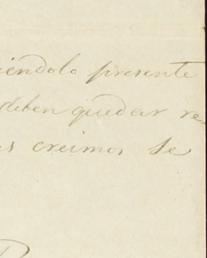 iéndolo presente
deben quedar re
s creimos se